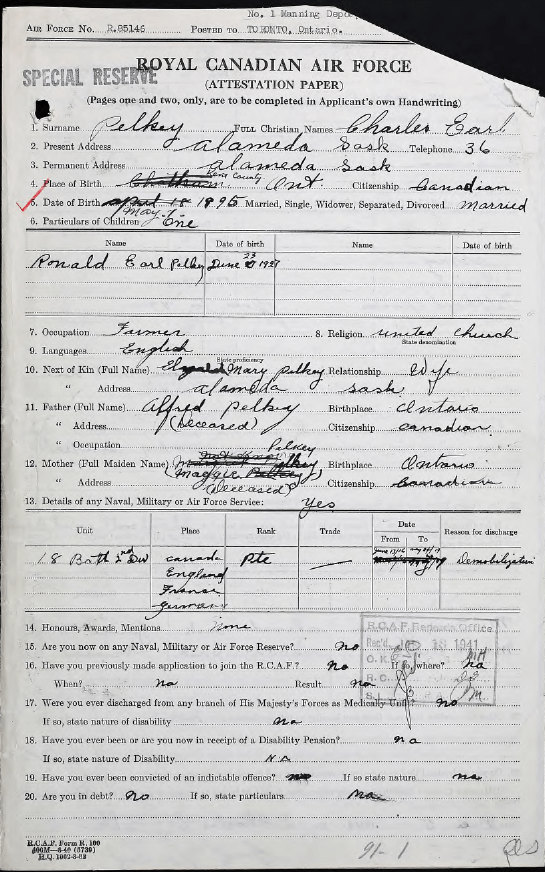 No. 1 Manning Depo
AIR FORCE No. R.85146 POSTED TO TORONTO, Ontario.
SPECIAL RESERVE
ROYAL CANADIAN AIR FORCE
(ATTESTATION PAPER)
(Pages one and two, only, are to be completed in Applicant's own Handwriting)
1. Surname Pelkey FULL Christian Names Charles Earl
2. Present Address Alameda Sask Telephone 36
3. Permanent Address Alameda Sask
4. Place of Birth Chatham Kent County Ont. Citizenship Canadian
5. Date of Birth April 18 1896 Married, Single, Widower, Separated, Divorced married
May
6. Particulars of Children One
Name Date of birth Name Date of birth
Ronald Earl Pelkey June 23 1927
7. Occupation Farmer 8. Religion United Church
State denomination
9. Languages English
State proficiency
10. Next of Kin (Full Name) Mary Pelkey Relationship Wife
" Address Alameda Sask
11. Father (Full Name) Alfred Pelkey Birthplace Ontario
" Address (Deceased) Citizenship Canadian
" Occupation
Pelkey
12. Mother (Full Maiden Name) Maggie Pelkey Birthplace Ontario
" Address (Deceased) Citizenship Canadian
13. Details of any Naval, Military or Air Force Service: Yes
Unit Place Rank Trade Date From To Reason for discharge
18 Batt 2nd Div Canada Pte — Demobilization
England
France
Germany
14. Honours, Awards, Mentions none
R.C.A.F. Records Office
15. Are you now on any Naval, Military or Air Force Reserve? No
Rec'd. 1941
16. Have you previously made application to join the R.C.A.F.? No If so, where? na
When? na Result na
17. Were you ever discharged from any branch of His Majesty's Forces as Medically Unfit No
If so, state nature of disability na
18. Have you ever been or are you now in receipt of a Disability Pension? na
If so, state nature of Disability NA
19. Have you ever been convicted of an indictable offence? no If so state nature na
20. Are you in debt? No If so, state particulars na
R.C.A.F. Form R. 100
H.Q. 1062-3-63
91-1